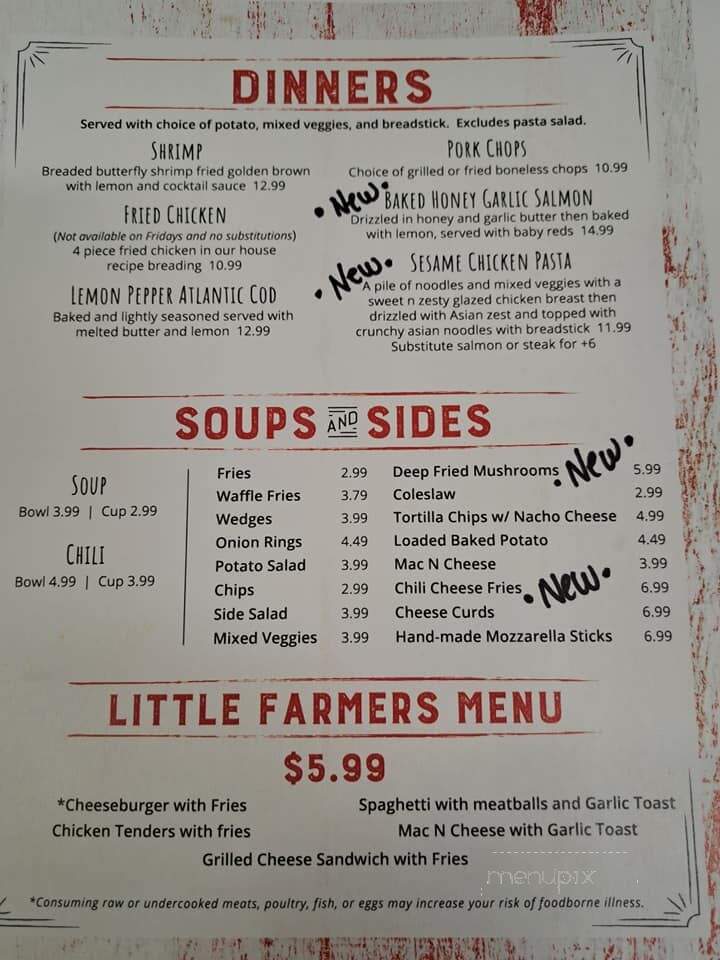 DINNERS
Served with choice of potato, mixed veggies, and breadstick. Excludes pasta salad.
SHRIMP
Breaded butterfly shrimp fried golden brown
with lemon and cocktail sauce 12.99
FRIED CHICKEN
(Not available on Fridays and no substitutions)
4 piece fried chicken in our house
recipe breading 10.99
LEMON PEPPER ATLANTIC COD
Baked and lightly seasoned served with
melted butter and lemon 12.99
PORK CHOPS
Choice of grilled or fried boneless chops 10.99
• New • BAKED HONEY GARLIC SALMON
Drizzled in honey and garlic butter then baked
with lemon, served with baby reds 14.99
• New • SESAME CHICKEN PASTA
A pile of noodles and mixed veggies with a
sweet n zesty glazed chicken breast then
drizzled with Asian zest and topped with
crunchy asian noodles with breadstick 11.99
Substitute salmon or steak for +6
SOUPS AND SIDES
SOUP
Bowl 3.99 | Cup 2.99
CHILI
Bowl 4.99 | Cup 3.99
Fries 2.99
Waffle Fries 3.79
Wedges 3.99
Onion Rings 4.49
Potato Salad 3.99
Chips 2.99
Side Salad 3.99
Mixed Veggies 3.99
Deep Fried Mushrooms • New • 5.99
Coleslaw 2.99
Tortilla Chips w/ Nacho Cheese 4.99
Loaded Baked Potato 4.49
Mac N Cheese 3.99
Chili Cheese Fries • New • 6.99
Cheese Curds 6.99
Hand-made Mozzarella Sticks 6.99
LITTLE FARMERS MENU
$5.99
*Cheeseburger with Fries
Chicken Tenders with fries
Spaghetti with meatballs and Garlic Toast
Mac N Cheese with Garlic Toast
Grilled Cheese Sandwich with Fries
menupix
*Consuming raw or undercooked meats, poultry, fish, or eggs may increase your risk of foodborne illness.